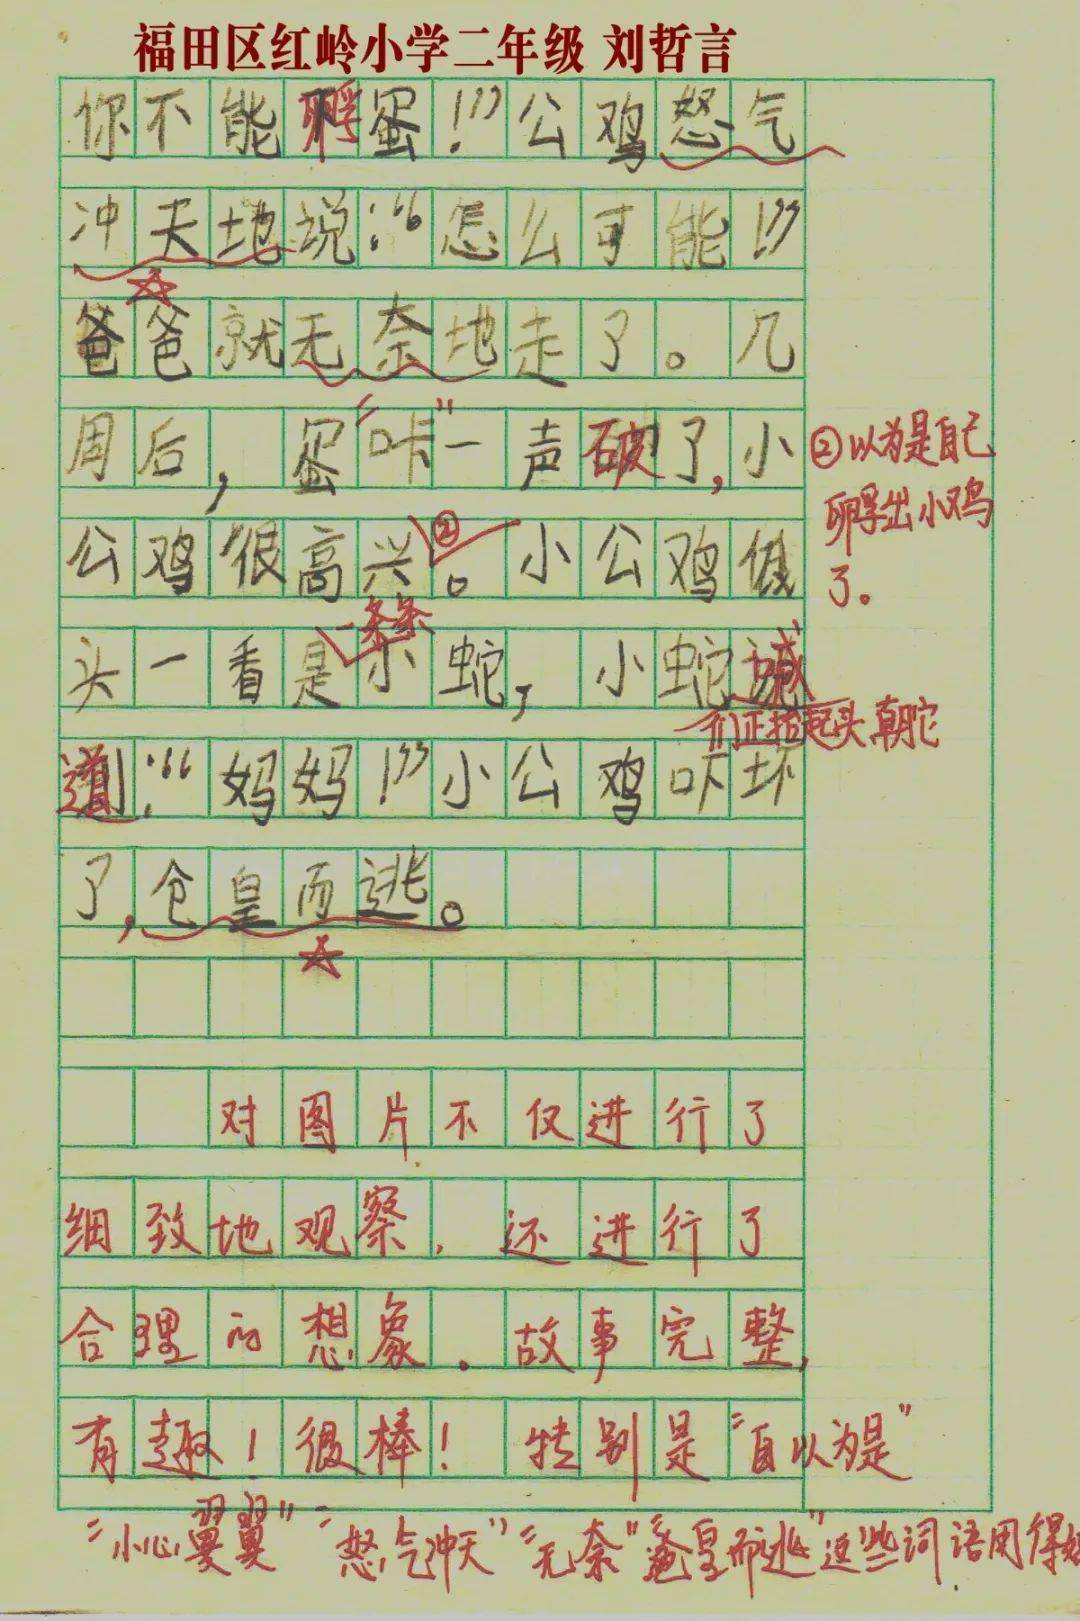 福田区红岭小学二年级 刘哲言
你不能孵蛋!”公鸡怒气
冲天地说:“怎么可能!”
爸爸就无奈地走了。几
周后,蛋“咔”一声破了,小
②以为是自己
孵出小鸡
了。
公鸡很高兴②。小公鸡低
一条条
头一看是小蛇,小蛇喊
们正抬起头朝它
道:“妈妈!”小公鸡吓坏
了,仓皇而逃。
对图片不仅进行了
细致地观察,还进行了
合理的想象。故事完整,
有趣!很棒!特别是“自以为是”
“小心翼翼”“怒气冲天”“无奈”“仓皇而逃”这些词语用得